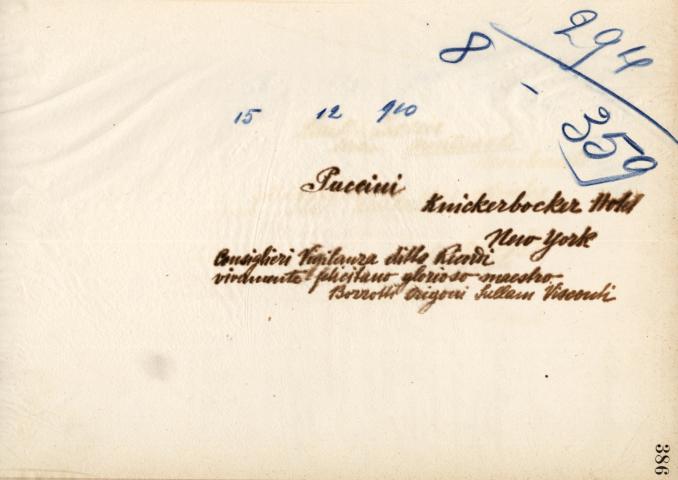 294
8 - 359
15 12 910
Puccini
Knickerbocker Hotel
New York
Consiglieri Vigilanza ditta Ricordi
vivamente felicitano glorioso maestro
Bozzotti Origoni Sullam Visconti
386